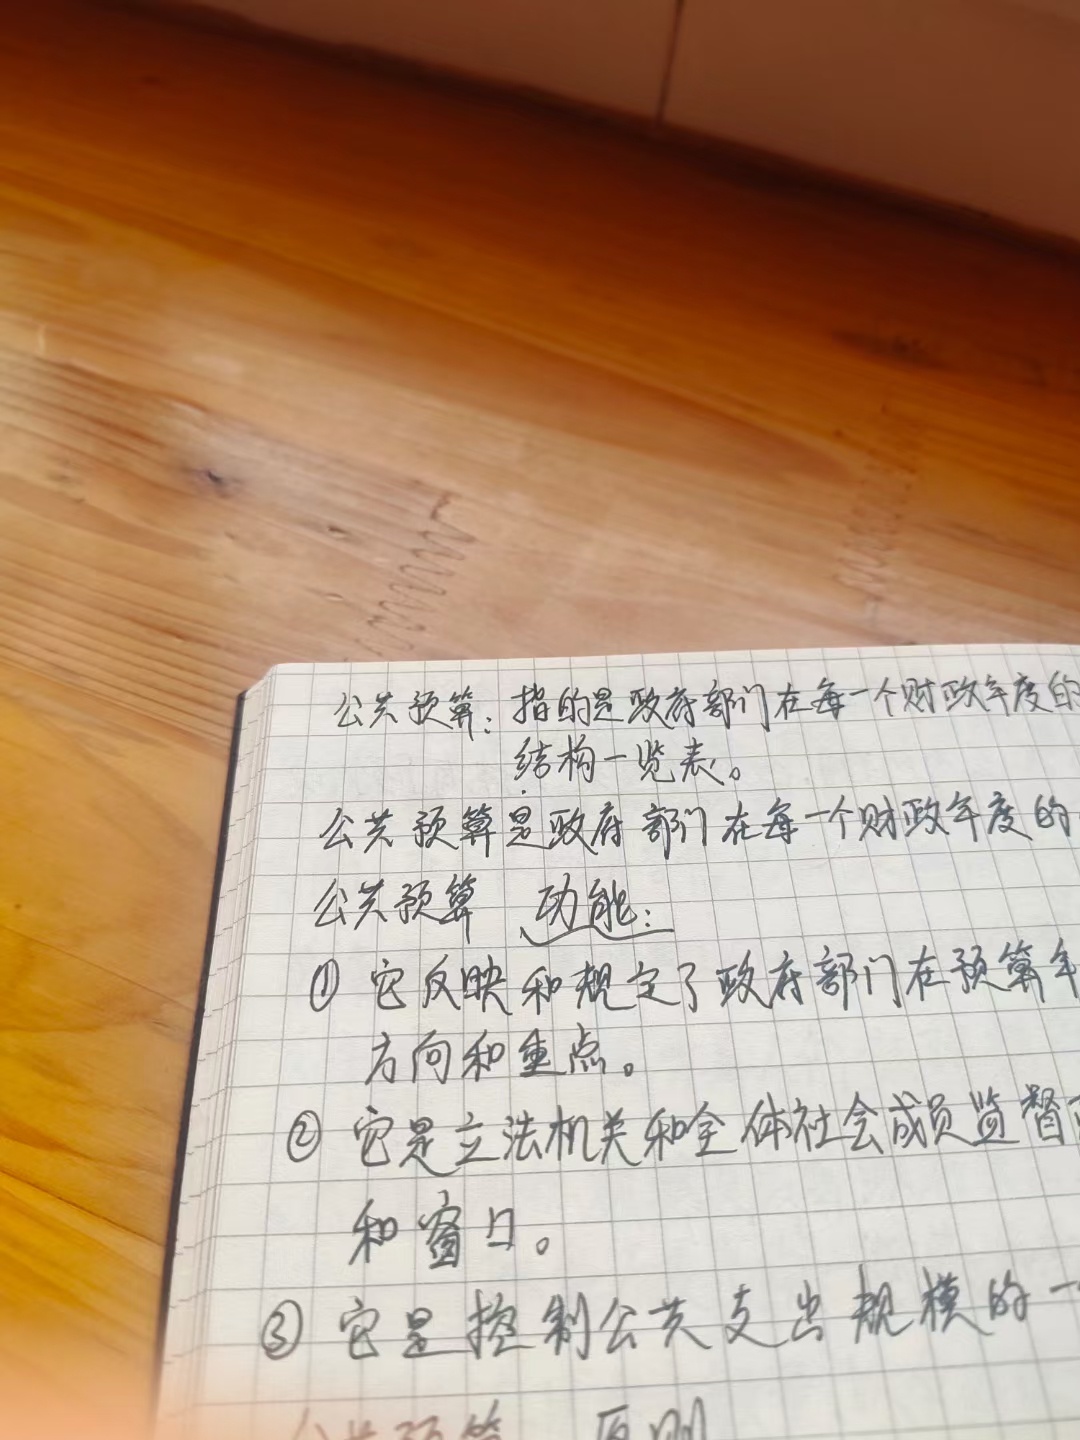 公共预算：指的是政府部门在每一个财政年度的
结构一览表。
公共预算是政府部门在每一个财政年度的
公共预算 功能：
① 它反映和规定了政府部门在预算年
方向和重点。
② 它是立法机关和全体社会成员监督
和窗口。
③ 它是控制公共支出规模的一
公共预算 原则